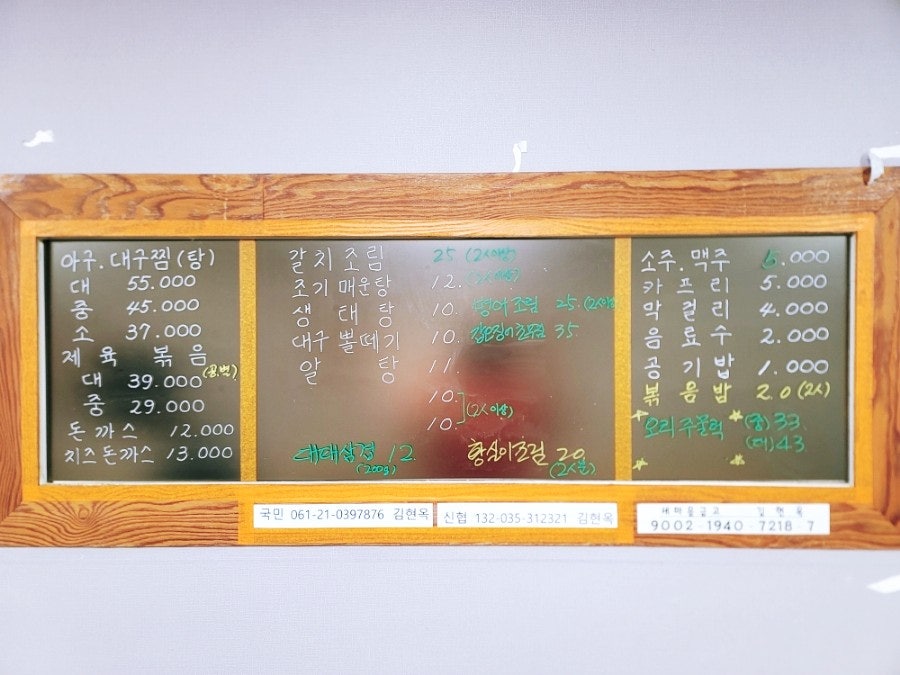 아구.대구찜(탕)
대 55.000
중 45.000
소 37.000
제육 볶음
대 39.000
중 29.000
돈까스 12.000
치즈돈까스 13.000
갈치조림 25 (2人이상)
조기매운탕 12. (2人이상)
생태탕 10.
대구뽈떼기 10.
알탕 11.
병어조림 25. (2人이상)
35.
10.
10.
(2人이상)
대패삼겹 12
(200g)
황실이조림 20
(2人분)
소주.맥주 5.000
카프리 5.000
막걸리 4.000
음료수 2.000
공기밥 1.000
볶음밥 2.0 (2人)
오리주물럭 (중) 33.
(대) 43
국민 061-21-0397876 김현옥
신협 132-035-312321 김현옥
새마을금고 김현옥
9002-1940-7218-7